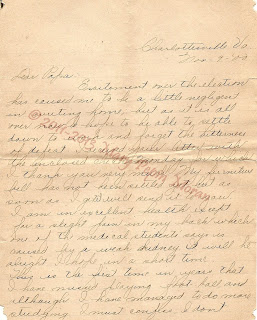 Charlottesville Va.
Nov. 9-00
Dear Papa:
Excitement over the election
has caused me to be a little negligent
in writing home, but as it is all
over now I hope to be able to settle
down to work and forget the bitterness
of defeat. I did not your letter until
the enclosed Monday
I thank you very much. My furniture
bill has not been settled yet but as
soon as I will send it
I am in excellent health except
for a slight pain in my back which
one of the medical students says is
caused by a weak kidney it will be
alright I hope in a short time.
This is the first time in years that
I have missed playing foot ball and
although I have managed to do more
studying I must confess I don't